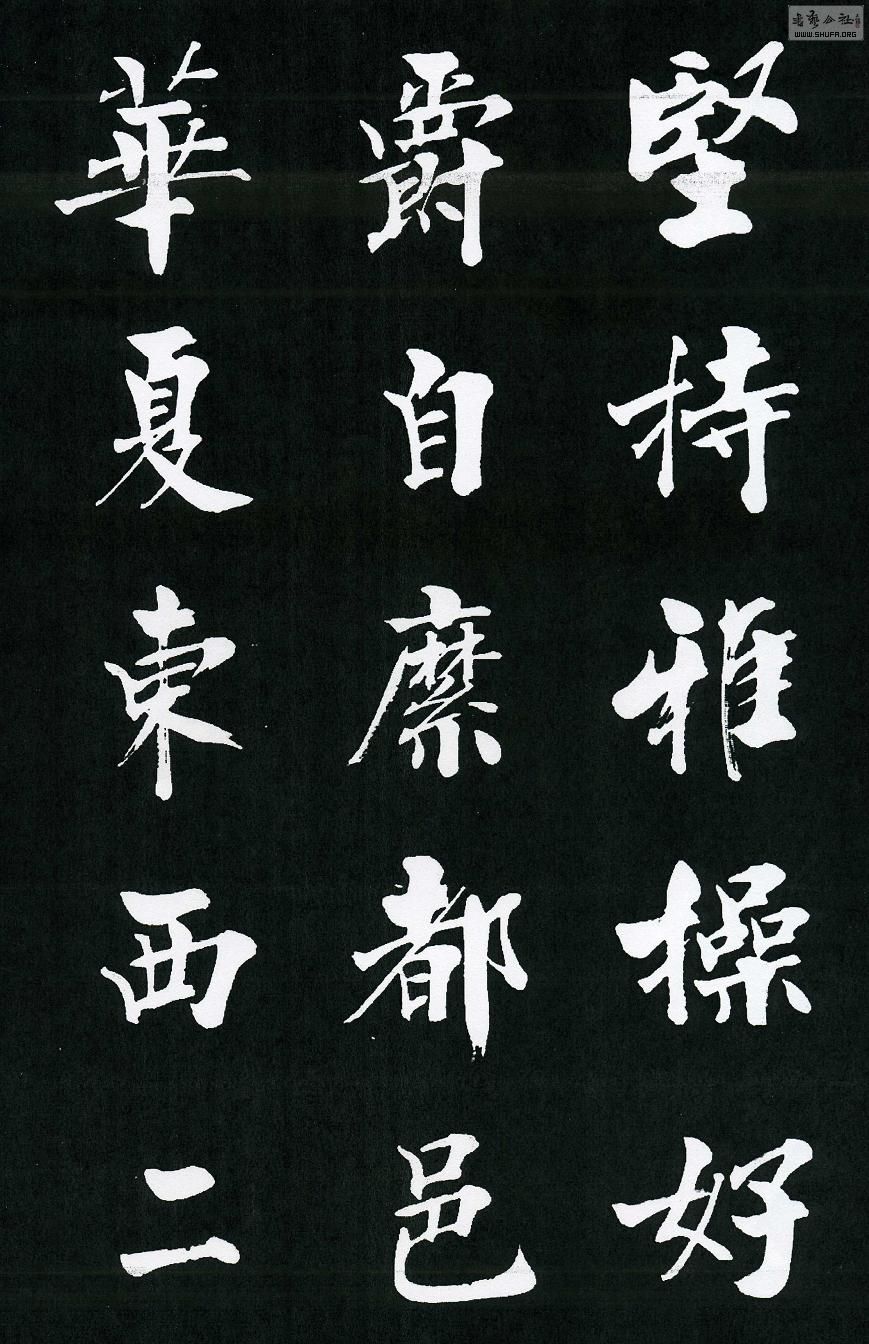 堅持雅操好
爵自縻都邑
華夏東西二
書藝公社
WWW.SHUFA.ORG